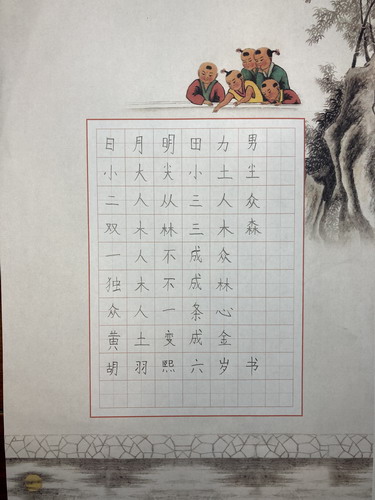 日月明田力男
小大尖小土尘
二人从三人众
双木林三木森
一人不成众
独木不成林
众人一条心
黄土变成金
胡羽熙六岁书